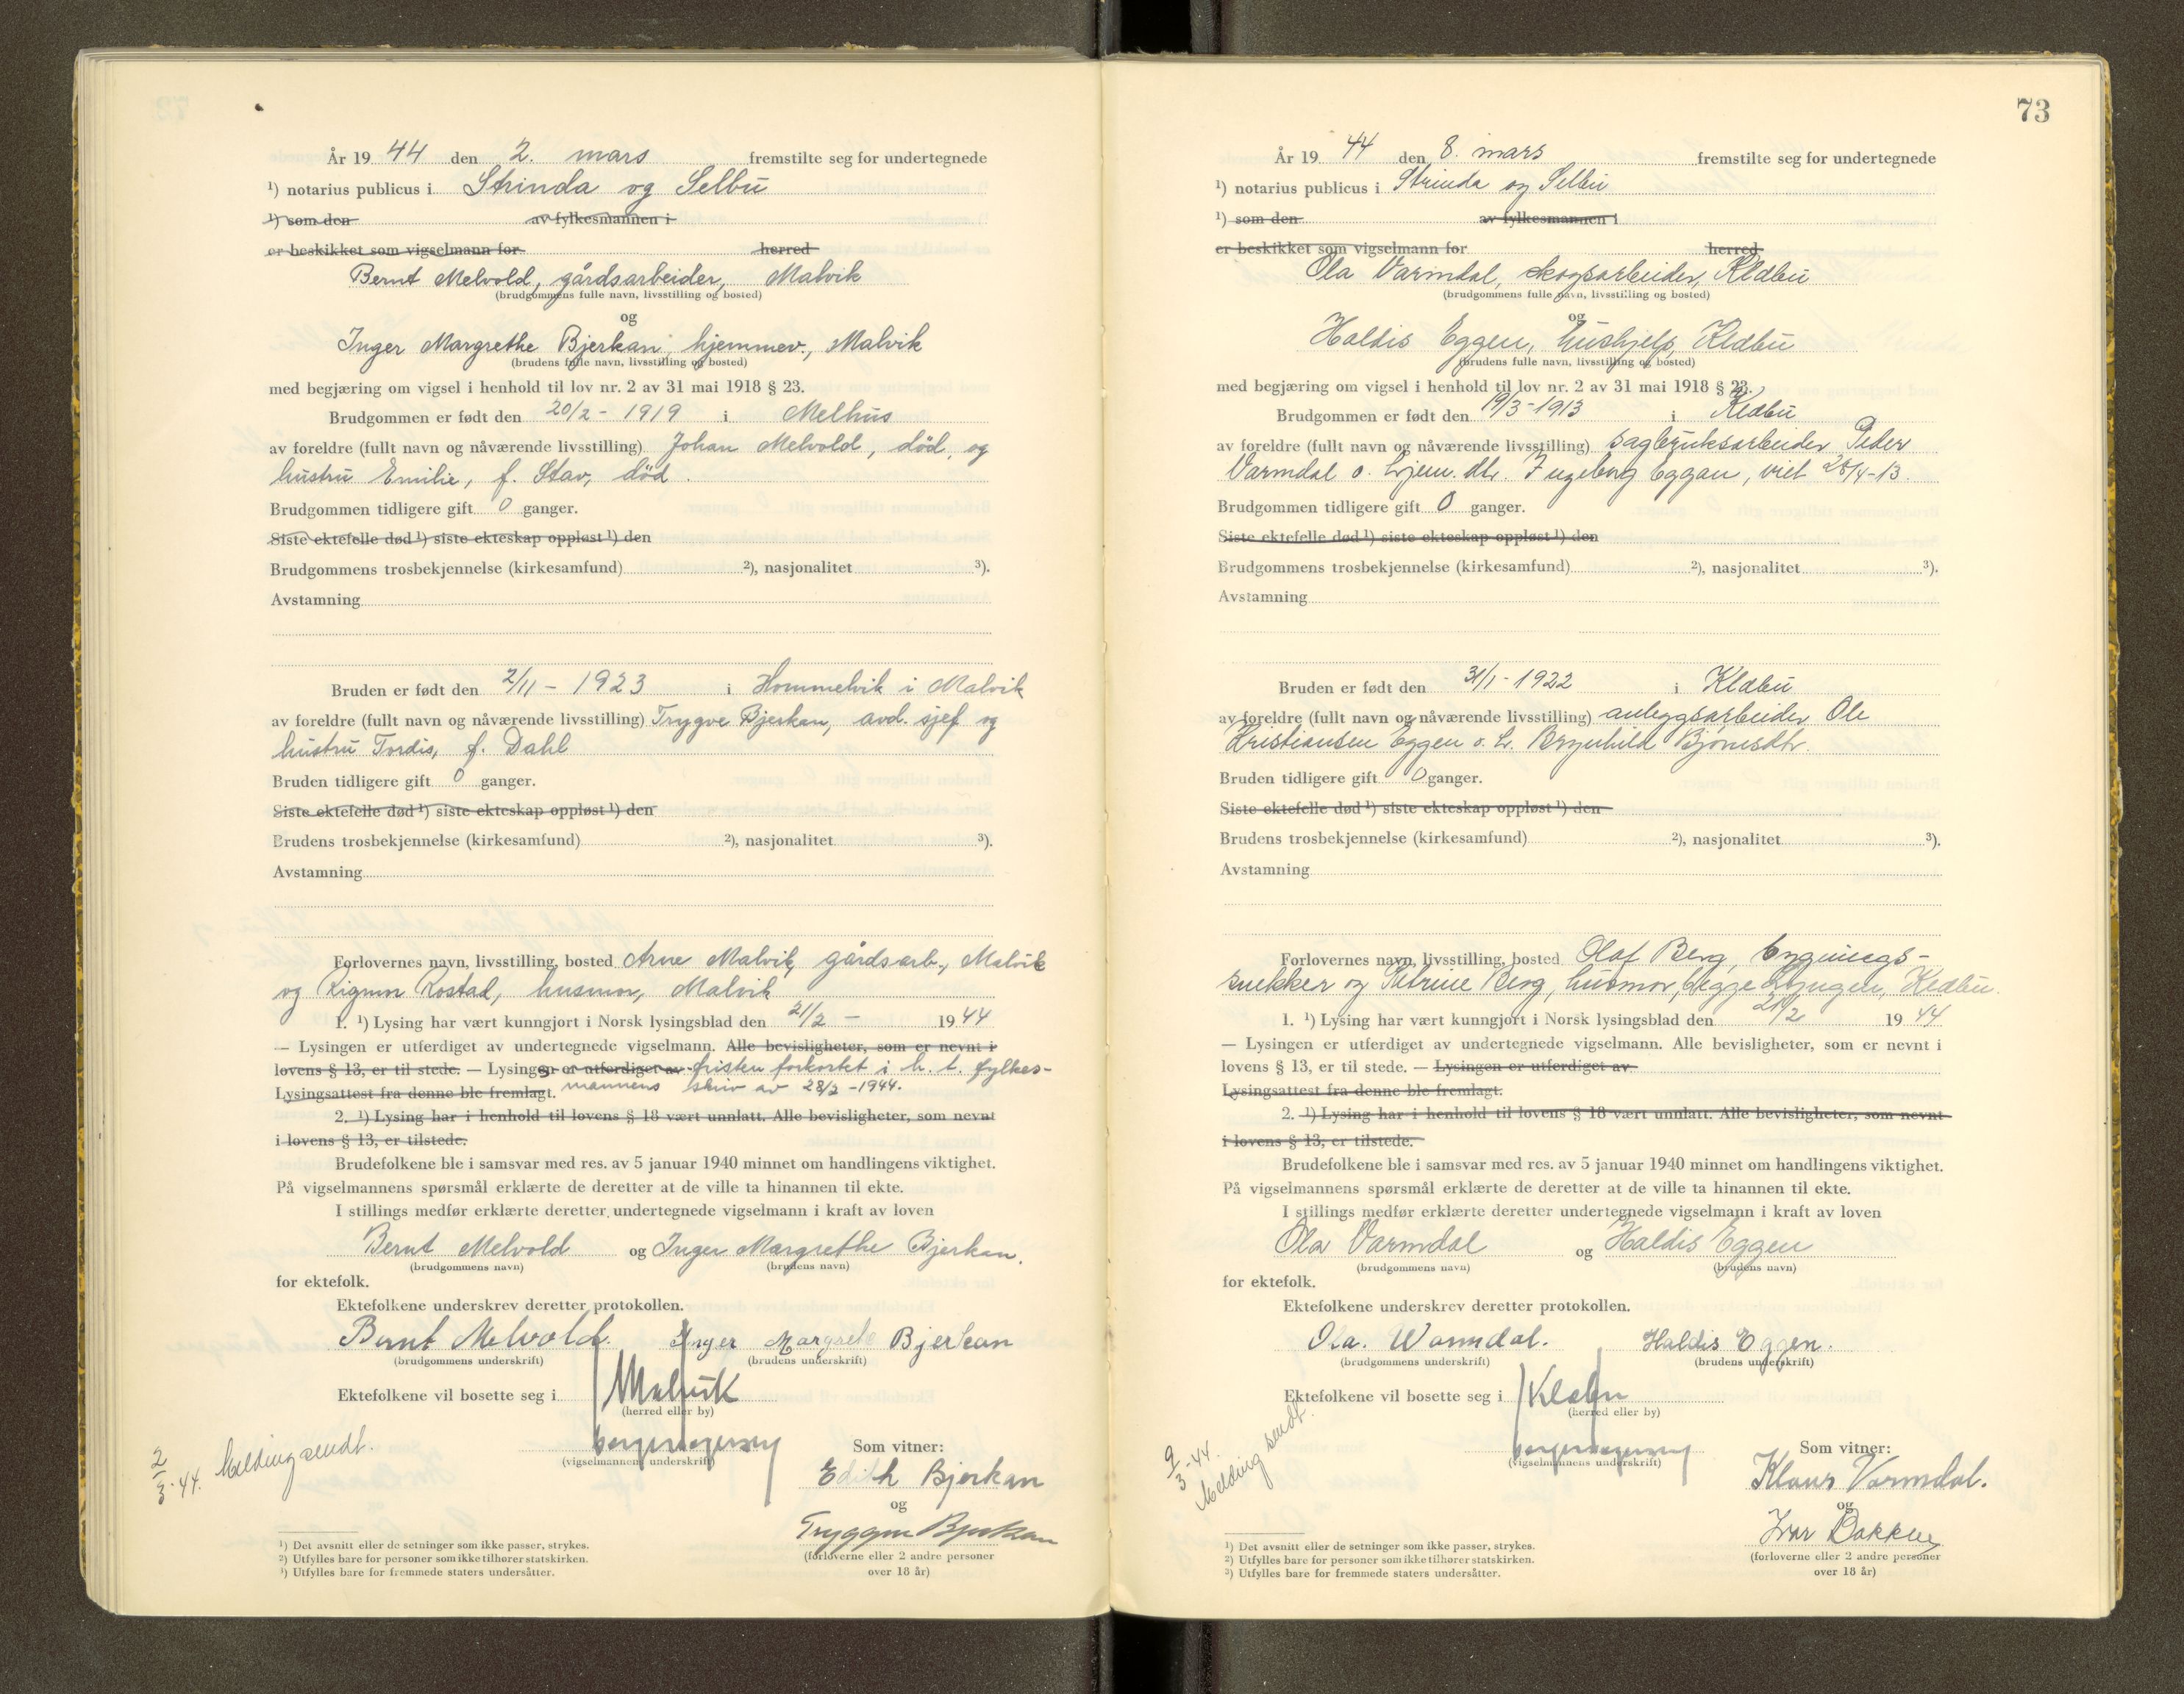 År 19 44 den 2. mars fremstilte seg for undertegnede
¹) notarius publicus i Strinda og Selbu
¹) som den av fylkesmannen i
er beskikket som vigselmann for herred
Bernt Melvold, gårdsarbeider, Malvik
(brudgommens fulle navn, livsstilling og bosted)
og
Inger Margrethe Bjerkan, hjemmev., Malvik
(brudens fulle navn, livsstilling og bosted)
med begjæring om vigsel i henhold til lov nr. 2 av 31 mai 1918 § 23.
Brudgommen er født den 20/2 - 1919 i Melhus
av foreldre (fullt navn og nåværende livsstilling) Johan Melvold, død, og
hustru Emilie, f. Stav, død.
Brudgommen tidligere gift 0 ganger.
Siste ektefelle død ¹) siste ekteskap oppløst ¹) den
Brudgommens trosbekjennelse (kirkesamfund) ²), nasjonalitet ³).
Avstamning
Bruden er født den 2/11 - 1923 i Hommelvik i Malvik
av foreldre (fullt navn og nåværende livsstilling) Trygve Bjerkan, avd. sjef og
hustru Tordis, f. Dahl
Bruden tidligere gift 0 ganger.
Siste ektefelle død ¹) siste ekteskap oppløst ¹) den
Brudens trosbekjennelse (kirkesamfund) ²), nasjonalitet ³).
Avstamning
Forlovernes navn, livsstilling, bosted Arne Malvik, gårdsarb., Malvik
og Rostad, husmor, Malvik
1. ¹) Lysing har vært kunngjort i Norsk lysingsblad den 21/2 - 19 44
— Lysingen er utferdiget av undertegnede vigselmann. Alle bevisligheter, som er nevnt i
lovens § 13, er til stede. — Lysingen er utferdiget av fristen forkortet i h. t. fylkes-
Lysingsattest fra denne ble fremlagt. mannens skriv av 28/2 - 1944.
2. ¹) Lysing har i henhold til lovens § 18 vært unnlatt. Alle bevisligheter, som nevnt
i lovens § 13, er tilstede.
Brudefolkene ble i samsvar med res. av 5 januar 1940 minnet om handlingens viktighet.
På vigselmannens spørsmål erklærte de deretter at de ville ta hinannen til ekte.
I stillings medfør erklærte deretter undertegnede vigselmann i kraft av loven
Bernt Melvold og Inger Margrethe Bjerkan.
(brudgommens navn) (brudens navn)
for ektefolk.
Ektefolkene underskrev deretter protokollen.
Bernt Melvold. Inger Margrete Bjerkan
(brudgommens underskrift) (brudens underskrift)
Ektefolkene vil bosette seg i Malvik
(herred eller by)
2/3-44. Melding sendt.
(vigselmannens underskrift) Som vitner:
Edith Bjerkan
og
Bjerkan
(forloverne eller 2 andre personer
over 18 år)
¹) Det avsnitt eller de setninger som ikke passer, strykes.
²) Utfylles bare for personer som ikke tilhører statskirken.
³) Utfylles bare for fremmede staters undersåtter.
73
År 19 44 den 8. mars fremstilte seg for undertegnede
¹) notarius publicus i Strinda og Selbu
¹) som den av fylkesmannen i
er beskikket som vigselmann for herred
Ola Varmdal, skogsarbeider, Klæbu
(brudgommens fulle navn, livsstilling og bosted)
og
Haldis Eggen, hushjelp, Klæbu
(brudens fulle navn, livsstilling og bosted)
med begjæring om vigsel i henhold til lov nr. 2 av 31 mai 1918 § 23.
Brudgommen er født den 19/3-1913 i Klæbu
av foreldre (fullt navn og nåværende livsstilling) sagbruksarbeider Peder
Varmdal o. hjem. dtr. Ingeborg Eggan, viet 28/4-13.
Brudgommen tidligere gift 0 ganger.
Siste ektefelle død ¹) siste ekteskap oppløst ¹) den
Brudgommens trosbekjennelse (kirkesamfund) ²), nasjonalitet ³).
Avstamning
Bruden er født den 31/1-1922 i Klæbu
av foreldre (fullt navn og nåværende livsstilling) anleggsarbeider Ole
Kristiansen Eggen o. h. Brynhild Bjørnsdtr.
Bruden tidligere gift 0 ganger.
Siste ektefelle død ¹) siste ekteskap oppløst ¹) den
Brudens trosbekjennelse (kirkesamfund) ²), nasjonalitet ³).
Avstamning
Forlovernes navn, livsstilling, bosted Olaf Berg, bygnings-
snekker og Petrine Berg, husmor, begge Klæbu.
1. ¹) Lysing har vært kunngjort i Norsk lysingsblad den 21/2 19 44
— Lysingen er utferdiget av undertegnede vigselmann. Alle bevisligheter, som er nevnt i
lovens § 13, er til stede. — Lysingen er utferdiget av
Lysingsattest fra denne ble fremlagt.
2. ¹) Lysing har i henhold til lovens § 18 vært unnlatt. Alle bevisligheter, som nevnt
i lovens § 13, er tilstede.
Brudefolkene ble i samsvar med res. av 5 januar 1940 minnet om handlingens viktighet.
På vigselmannens spørsmål erklærte de deretter at de ville ta hinannen til ekte.
I stillings medfør erklærte deretter undertegnede vigselmann i kraft av loven
Ola Varmdal og Haldis Eggen
(brudgommens navn) (brudens navn)
for ektefolk.
Ektefolkene underskrev deretter protokollen.
Ola. Warmdal. Haldis Eggen.
(brudgommens underskrift) (brudens underskrift)
Ektefolkene vil bosette seg i Klæbu
(herred eller by)
9/3-44. Melding sendt.
(vigselmannens underskrift) Som vitner:
Klaus Varmdal.
og
Ivar Bakken
(forloverne eller 2 andre personer
over 18 år)
¹) Det avsnitt eller de setninger som ikke passer, strykes.
²) Utfylles bare for personer som ikke tilhører statskirken.
³) Utfylles bare for fremmede staters undersåtter.